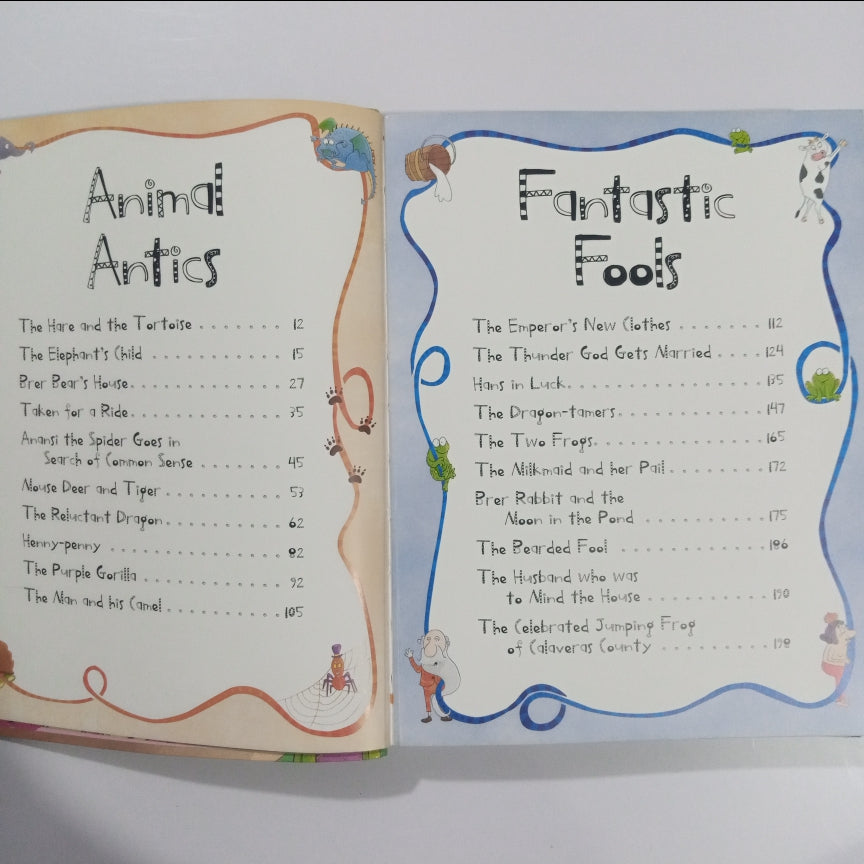 Animal
Antics
The Hare and the Tortoise . . . . . . . 12
The Elephant's Child . . . . . . . . . . . 15
Brer Bear's House. . . . . . . . . . . . . 27
Taken for a Ride. . . . . . . . . . . . . 35
Anansi the Spider Goes in
Search of Common Sense . . . . . . . 45
Mouse Deer and Tiger . . . . . . . . . . 53
The Reluctant Dragon. . . . . . . . . . 62
Henny-penny . . . . . . . . . . . . . . . 82
The Purple Gorilla . . . . . . . . . . . . 92
The Man and his Camel . . . . . . . . . . 105
Fantastic
Fools
The Emperor's New Clothes . . . . . . . 112
The Thunder God Gets Married . . . . 124
Hans in Luck. . . . . . . . . . . . . . . . 135
The Dragon-tamers. . . . . . . . . . . . 147
The Two Frogs. . . . . . . . . . . . . . 165
The Milkmaid and her Pail . . . . . . . . 172
Brer Rabbit and the
Moon in the Pond . . . . . . . . . . 175
The Bearded Fool . . . . . . . . . . . . 186
The Husband who was
to Mind the House . . . . . . . . . . 190
The Celebrated Jumping Frog
of Calaveras County . . . . . . . . . 198